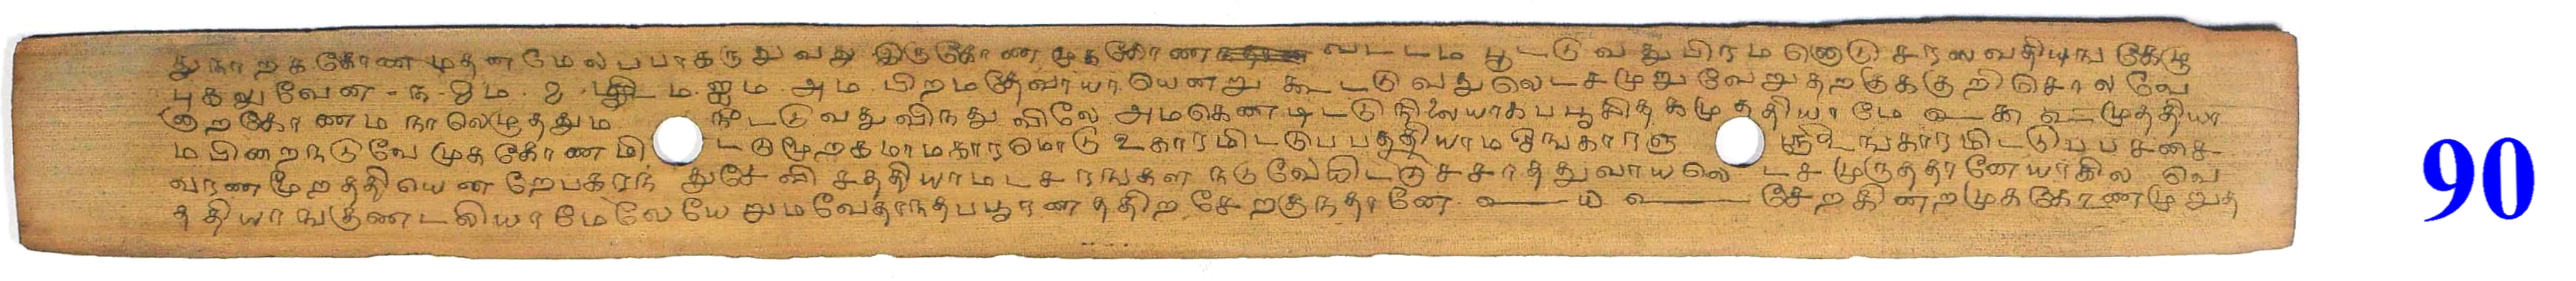 துநாறககோணமுதனமேலபபாகருதுவது இருகோணமுககோண வடடம பூடடுவதுபிரமனொடு சரஸவதியுஙகேழு
புகலுவேன - ந - 8 ம . 8 . ம . ஐம . அம . பிறமதேவாயா யெனறு கூடடுவதுலெடசமுறுவேறுதறகுககுறி சொலவே
னறகோணம நாலெழுததும நாடடுவதுவிநதுவிலே அமகெணடிடடு நிலையாகபபூசிதகமுததியாமே முததியா
மபினறநடுவேமுககோணமி டடுமூறகமாமகாரமொடு உகாரமிடடுபபததியாம ஓஙகாரஞ ஙகாரமிடடுபபசசை
வரணமூறததியெனறேபகரந துசேவிசததியாமடசரஙகள நடுவேயிடடுசசாததுவாயலெ டசமுருததானேயாகில வெ
ததியாஙகுணடலியாமேலேயேறுமவேதாநதபபூரணததிறசேறகுநதானே ௰ சேறகினறமுககோணமூறுத
90